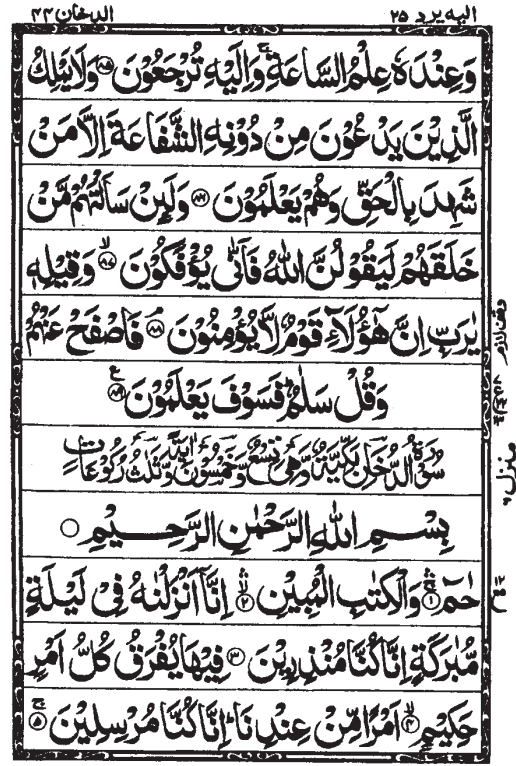 الیه یرد ۲۵
الدخان ۴۴
وَعِنْدَهٗ عِلْمُ السَّاعَةِ ۚ وَاِلَيْهِ تُرْجَعُوْنَ ﴿۸۵﴾ وَلَا يَمْلِكُ
الَّذِيْنَ يَدْعُوْنَ مِنْ دُوْنِهِ الشَّفَاعَةَ اِلَّا مَنْ
شَهِدَ بِالْحَقِّ وَهُمْ يَعْلَمُوْنَ ﴿۸۶﴾ وَلَئِنْ سَاَلْتَهُمْ مَّنْ
خَلَقَهُمْ لَيَقُوْلُنَّ اللّٰهُ فَاَنّٰى يُؤْفَكُوْنَ ﴿۸۷﴾ وَقِيْلِهٖ
يٰرَبِّ اِنَّ هٰٓؤُلَآءِ قَوْمٌ لَّا يُؤْمِنُوْنَ ﴿۸۸﴾ فَاصْفَحْ عَنْهُمْ
وَقُلْ سَلٰمٌ ؕ فَسَوْفَ يَعْلَمُوْنَ ﴿۸۹﴾ ع
سُوْرَةُ الدُّخَانِ مَكِّيَّةٌ وَّهِيَ تِسْعٌ وَّخَمْسُوْنَ اٰيَةً وَّثَلٰثُ رُكُوْعَاتٍ
بِسْمِ اللّٰهِ الرَّحْمٰنِ الرَّحِيْمِ ○
حٰمٓ ﴿۱﴾ وَالْكِتٰبِ الْمُبِيْنِ ﴿۲﴾ اِنَّاۤ اَنْزَلْنٰهُ فِيْ لَيْلَةٍ
مُّبٰرَكَةٍ اِنَّا كُنَّا مُنْذِرِيْنَ ﴿۳﴾ فِيْهَا يُفْرَقُ كُلُّ اَمْرٍ
حَكِيْمٍ ﴿۴﴾ اَمْرًا مِّنْ عِنْدِنَا ؕ اِنَّا كُنَّا مُرْسِلِيْنَ ﴿۵﴾
وقف لازم
منزل ۶